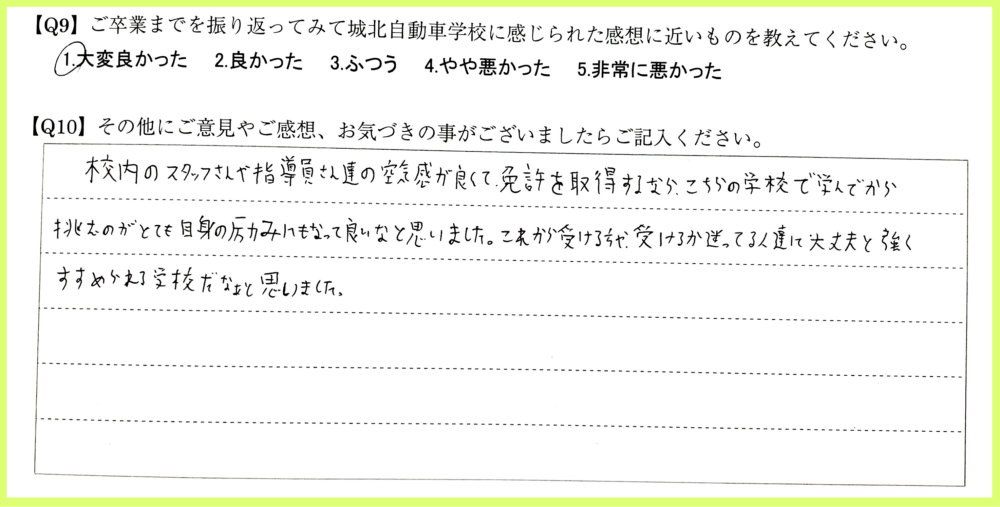 【Q9】ご卒業までを振り返ってみて城北自動車学校に感じられた感想に近いものを教えてください。
1.大変良かった 2.良かった 3.ふつう 4.やや悪かった 5.非常に悪かった
【Q10】その他にご意見やご感想、お気づきの事がございましたらご記入ください。
校内のスタッフさんや指導員さん達の空気感が良くて、免許を取得するなら、こちらの学校で学んでから
挑むのがとても自身の励みにもなって良いなと思いました。これから受ける方や、受けるか迷ってる人達に大丈夫と強く
すすめられる学校だなぁと思いました。